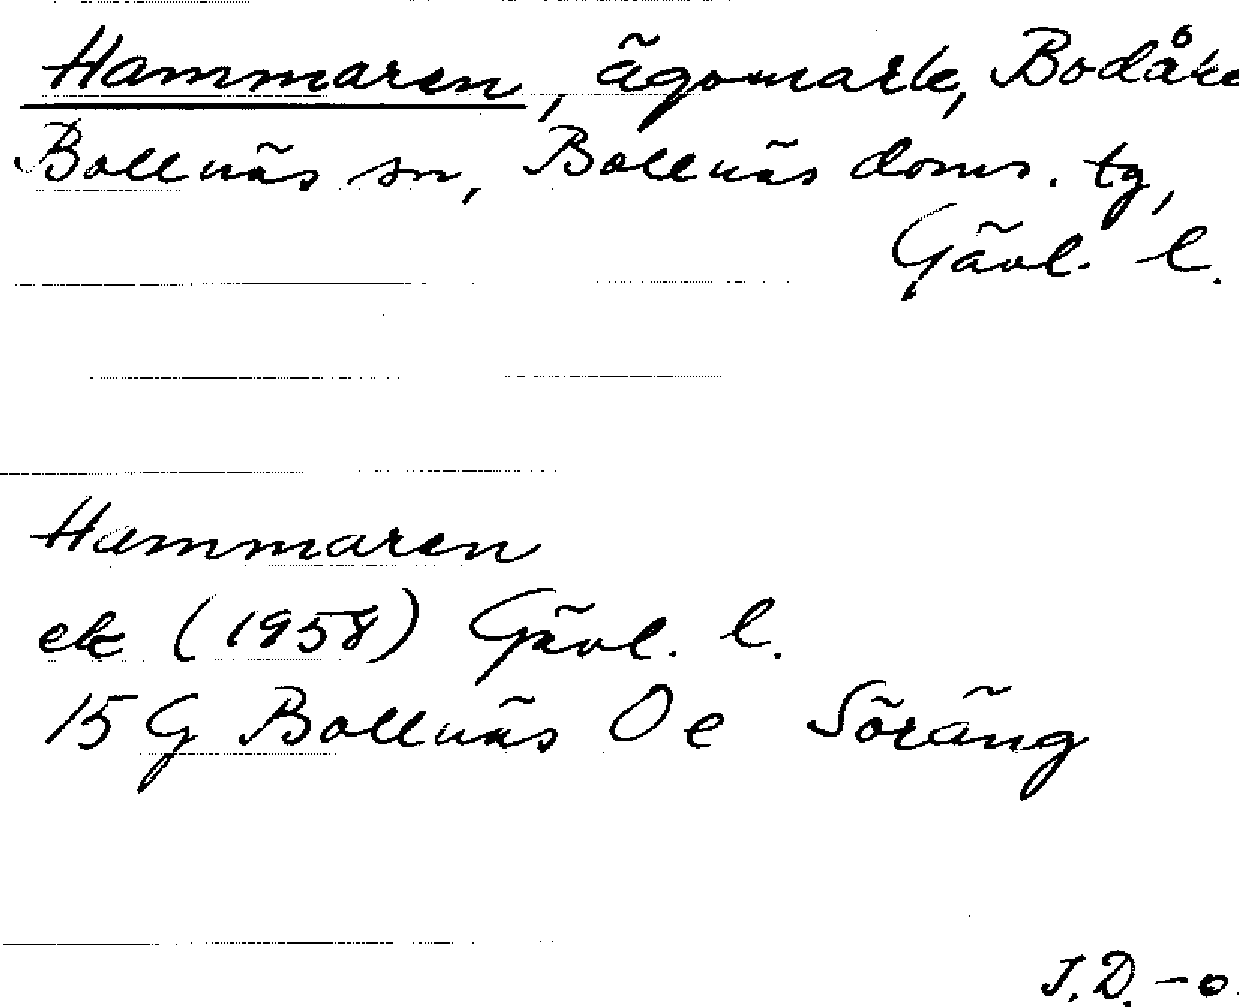 Hammaren, ägomark, Bodåke
Bollnäs sn, Bollnäs doms. tg,
Gävl. l.
Hammaren
ek (1958) Gävl. l.
15 G Bollnäs O e Söräng
J.D. - o.